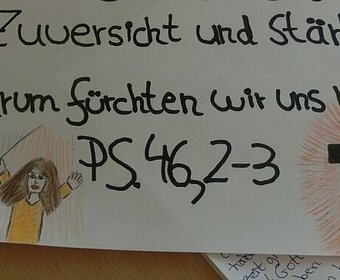 Zuversicht und Stär
rum fürchten wir uns
PS. 46,2-3